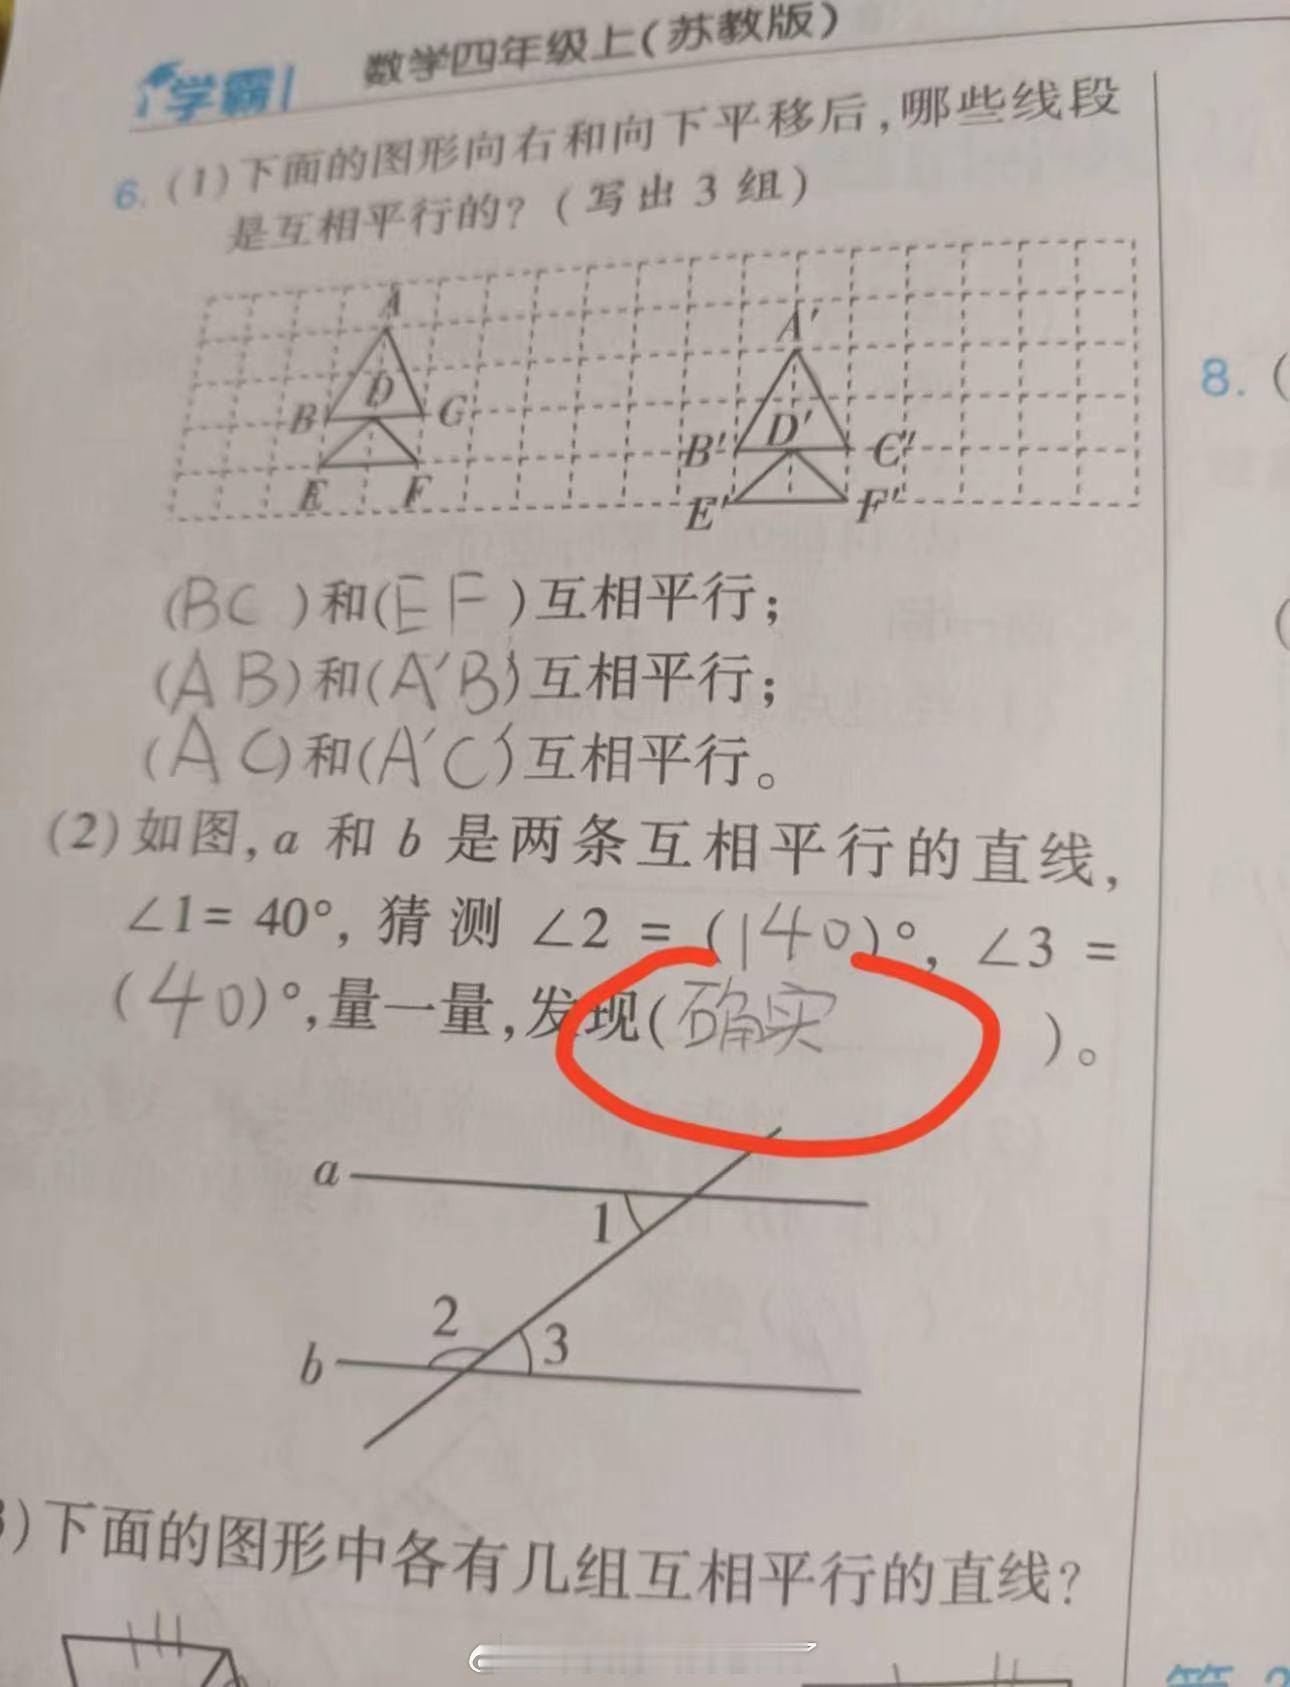 学霸
数学四年级上(苏教版)
6. (1)下面的图形向右和向下平移后,哪些线段
是互相平行的?(写出3组)
A
A′
B D G
B′ D′ C′
E F
E′ F′
(BC)和(EF)互相平行;
(AB)和(A′B′)互相平行;
(AC)和(A′C′)互相平行。
(2)如图,a 和 b 是两条互相平行的直线,
∠1=40°,猜测∠2=(140)°,∠3=
(40)°,量一量,发现(确实)。
a
1
2
3
b
)下面的图形中各有几组互相平行的直线?
8. (
(